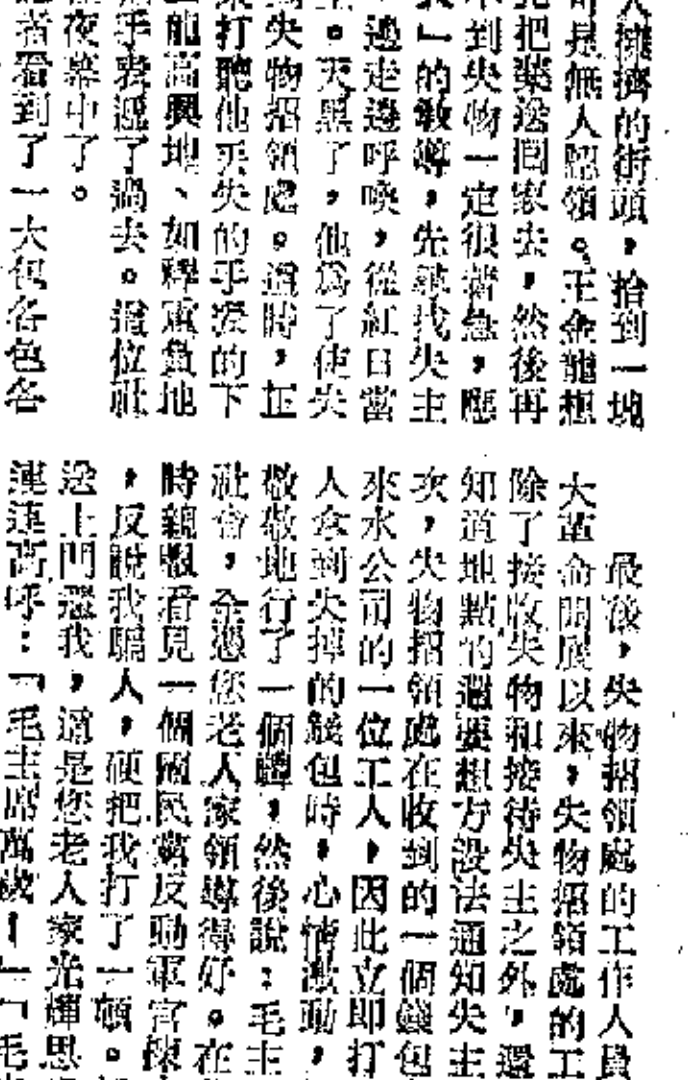 人擁擠的街頭，拾到一塊
可是無人認領。王金龍想
先把藥送回家去，然後再
不到失物一定很着急，應
」的教導，先尋找失主
，邊走邊呼喚，從紅日當
。天黑了，他爲了使失
到失物招領處。這時，正
來打聽他丟失的手錶的下
龍高興地、如釋重負地
手表遞了過去。這位
夜幕中了。
者看到了一大包各色各
最後，失物招領處的工作人員
大革命開展以來，失物招領處的工
除了接收失物和接待失主之外，還
知道地點的還要想方設法通知失主
次，失物招領處在收到的一個錢包
來水公司的一位工人，因此立即打
人拿到失掉的錢包時，心情激動，
敬敬地行了一個禮，然後說：毛主
社會，全憑您老人家領導得好。在
時親眼看見一個國民黨反動軍官
，反說我騙人，硬把我打了一頓。
送上門還我，這是您老人家光輝思
連連高呼：「毛主席萬歲！」「毛